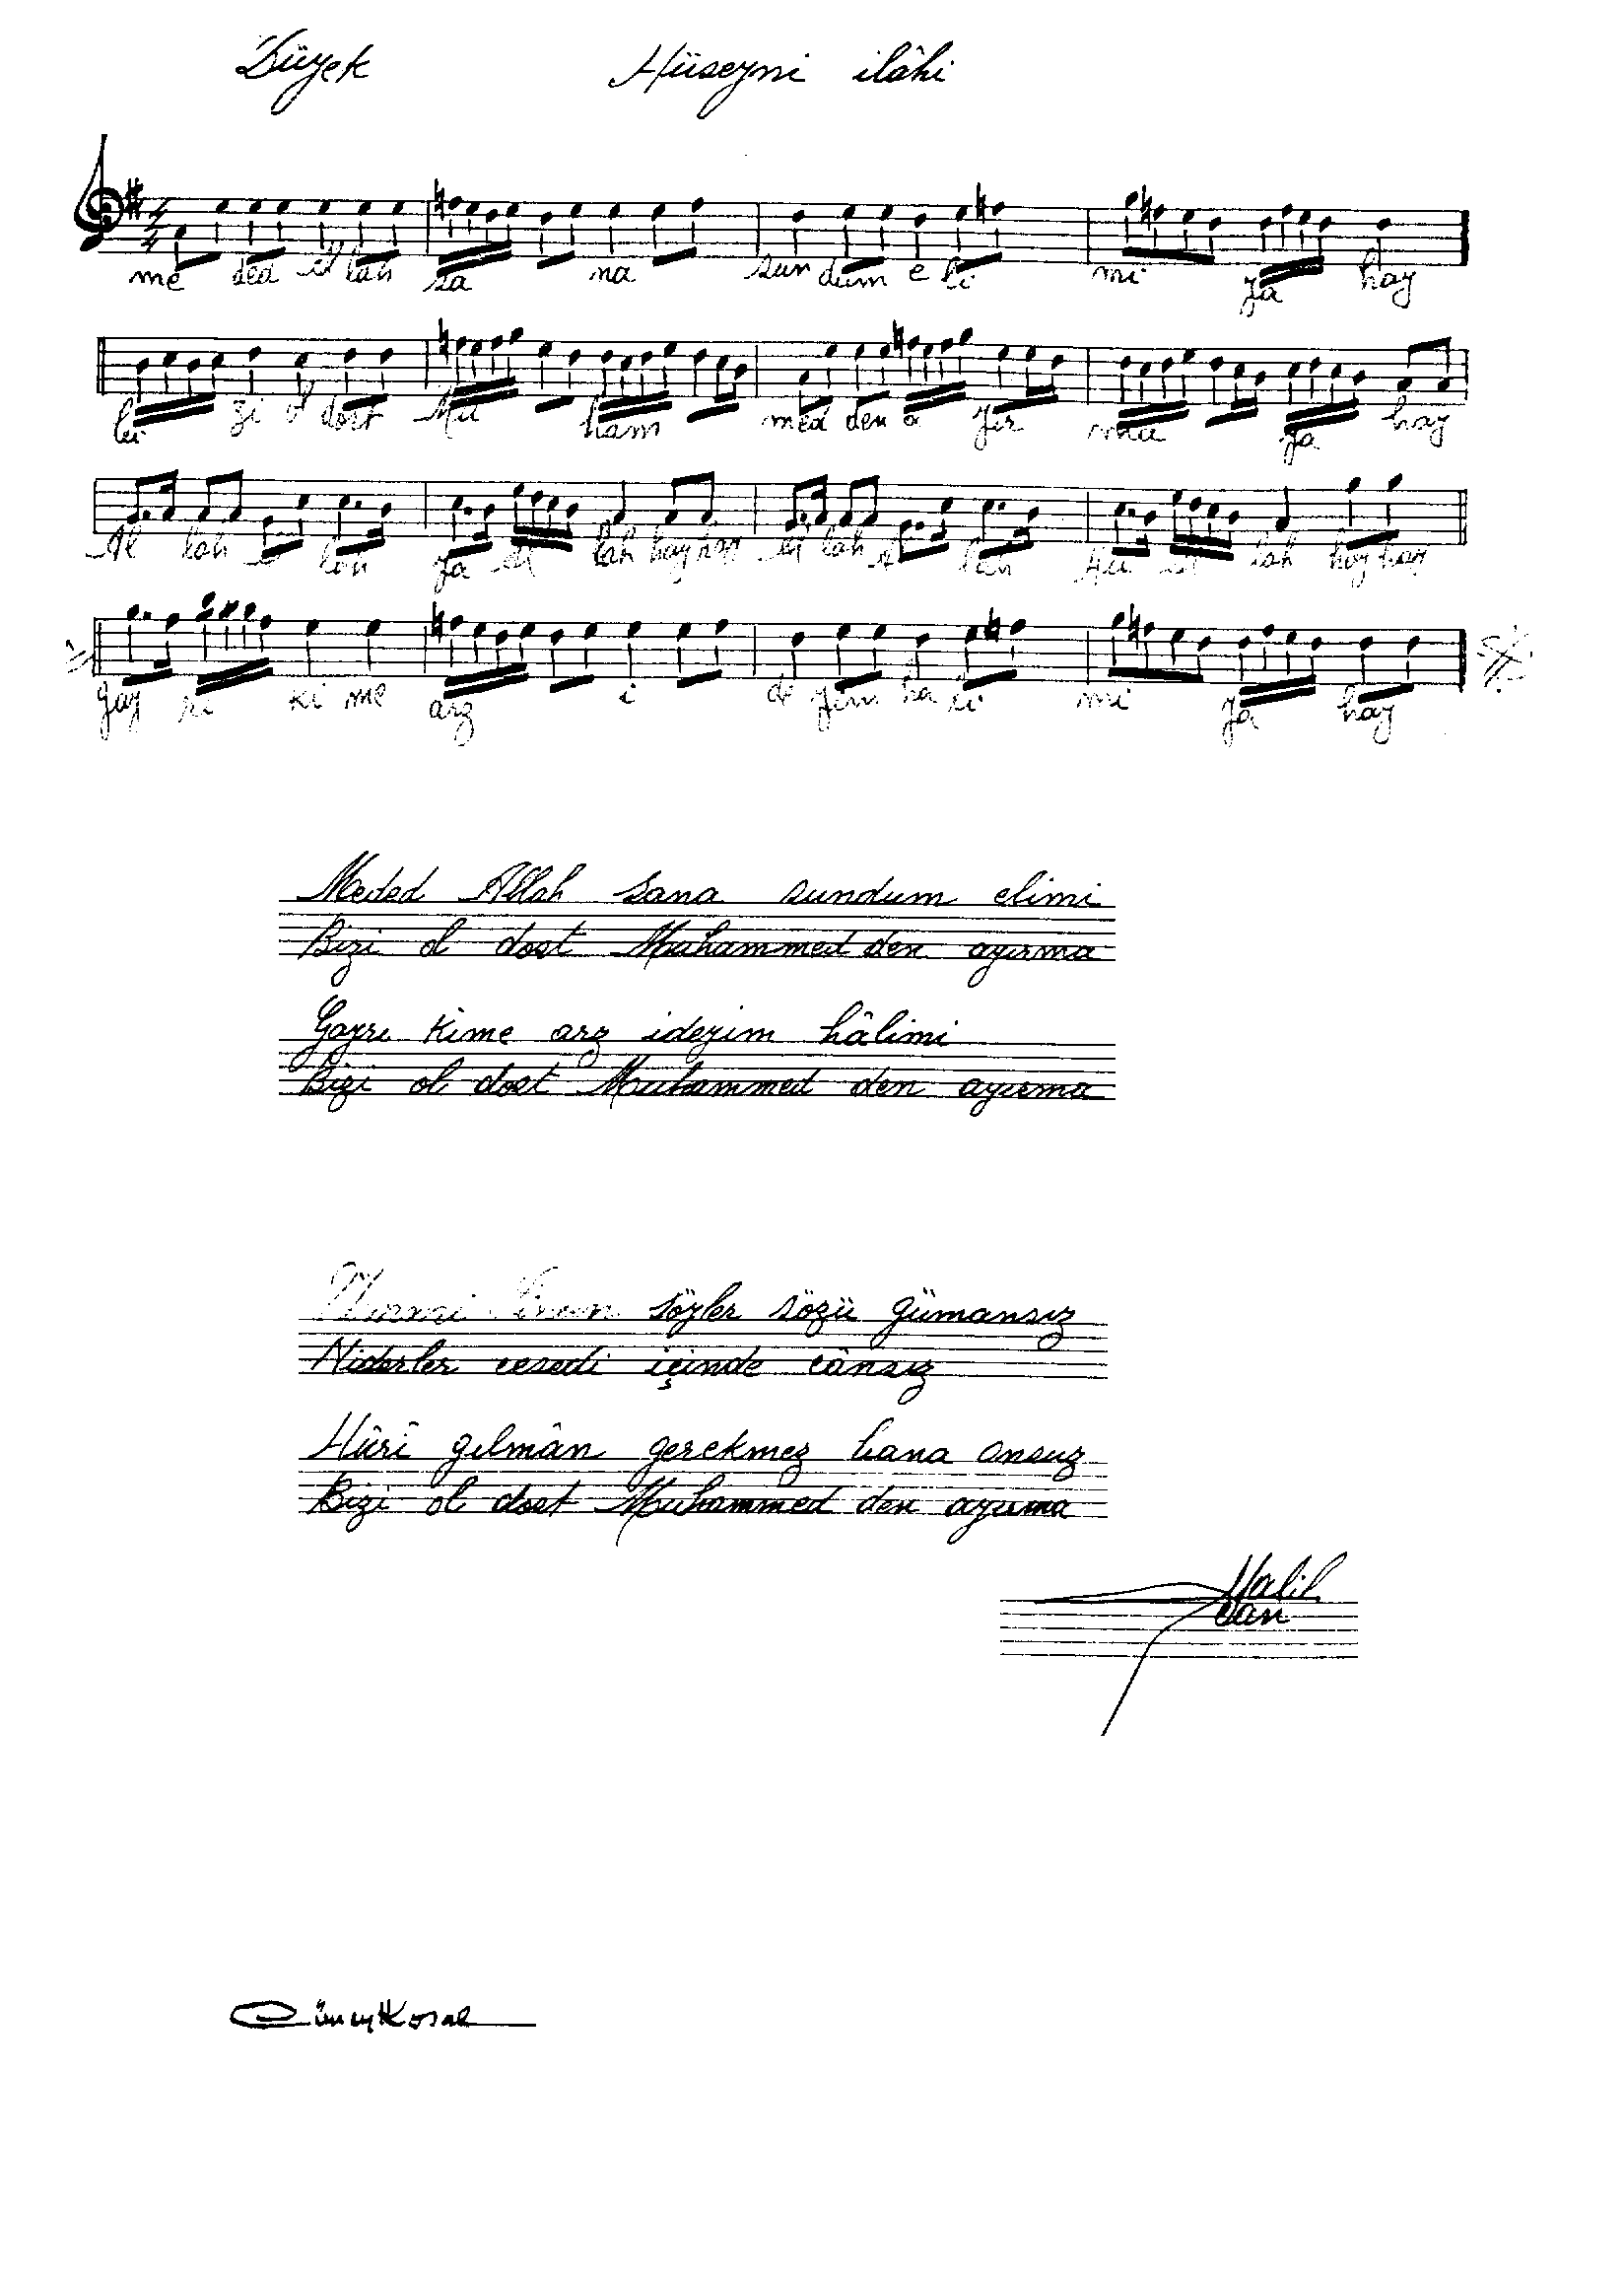 Düyek Hüseyni ilâhi
me ded al lah sa na sun dum e li mi ya hay
bi zi ol dost Mu ham med den a yır ma ya hay
Al lah al lah ya al lah hay hay al lah al lah Hu al lah hay hay
gay ri ki me arz i de yim ha li mi ya hay
Meded Allah sana sundum elimi
Bizi ol dost Muhammed den ayırma
Gayrı kime arz ideyim hâlimi
Bizi ol dost Muhammed den ayırma
söyler sözü gümansız
Niderler cesedi içinde cânsız
Hûrî gılmân gerekmez bana onsuz
Bizi ol dost Muhammed den ayırma
Halil
can
Cüneyt Kosal